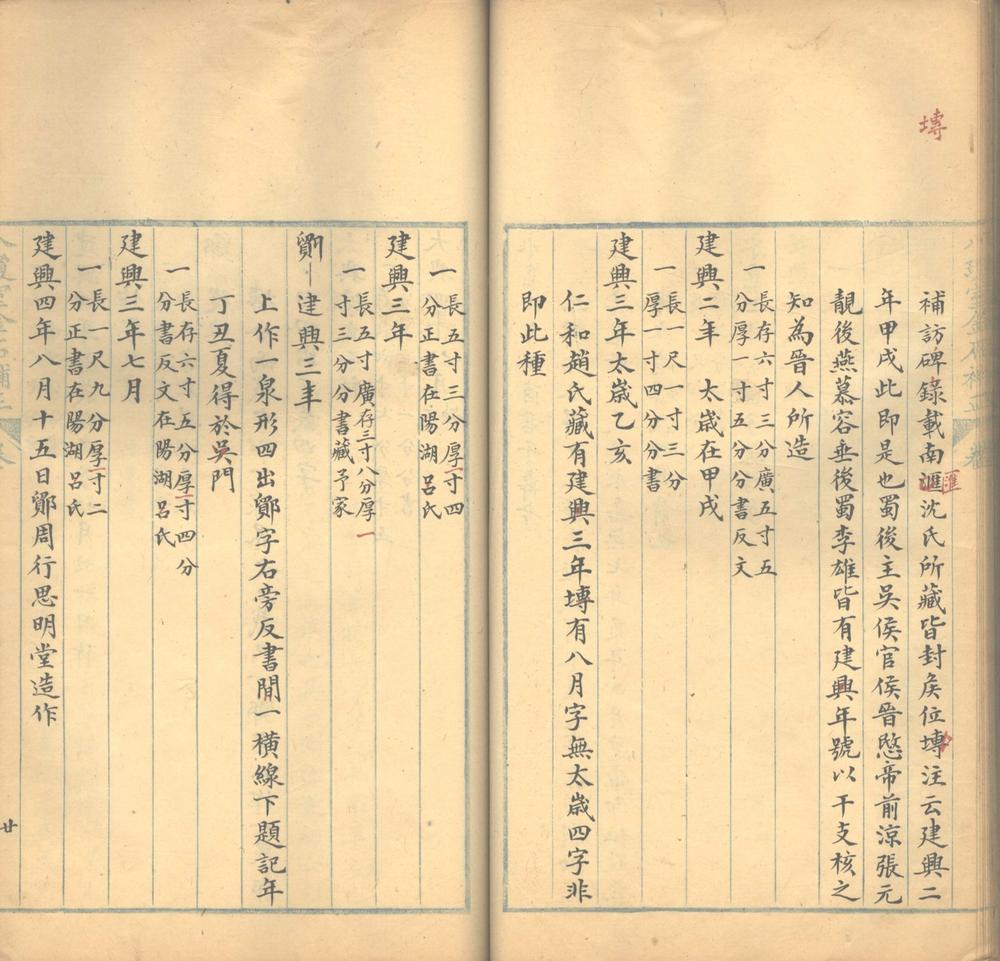 塼
匯
補訪碑錄載南匯沈氏所藏皆封矦位塼注云建興二
年甲戌此即是也蜀後主吳侯官侯晉愍帝前涼張元
靚後燕慕容垂後蜀李雄皆有建興年號以干支核之
知為晉人所造
一長存六寸三分廣五寸五
分厚一寸五分分書反文
建興二年 太歲在甲戌
一長一尺一寸三分
厚一寸四分分書
建興三年太歲乙亥
仁和趙氏藏有建興三年塼有八月字無太歲四字非
即此種
一長五寸三分厚一寸四
分正書在陽湖呂氏
建興三年
一長五寸廣存三寸八分厚一
寸三分分書藏予家
鄮建興三年
上作一泉形四出鄮字右旁反書閒一橫線下題記年
丁丑夏得於吳門
一長存六寸五分厚一寸四分
分書反文在陽湖呂氏
建興三年七月
一長一尺九分厚一寸二
分正書在陽湖呂氏
建興四年八月十五日鄮周行思明堂造作
廿